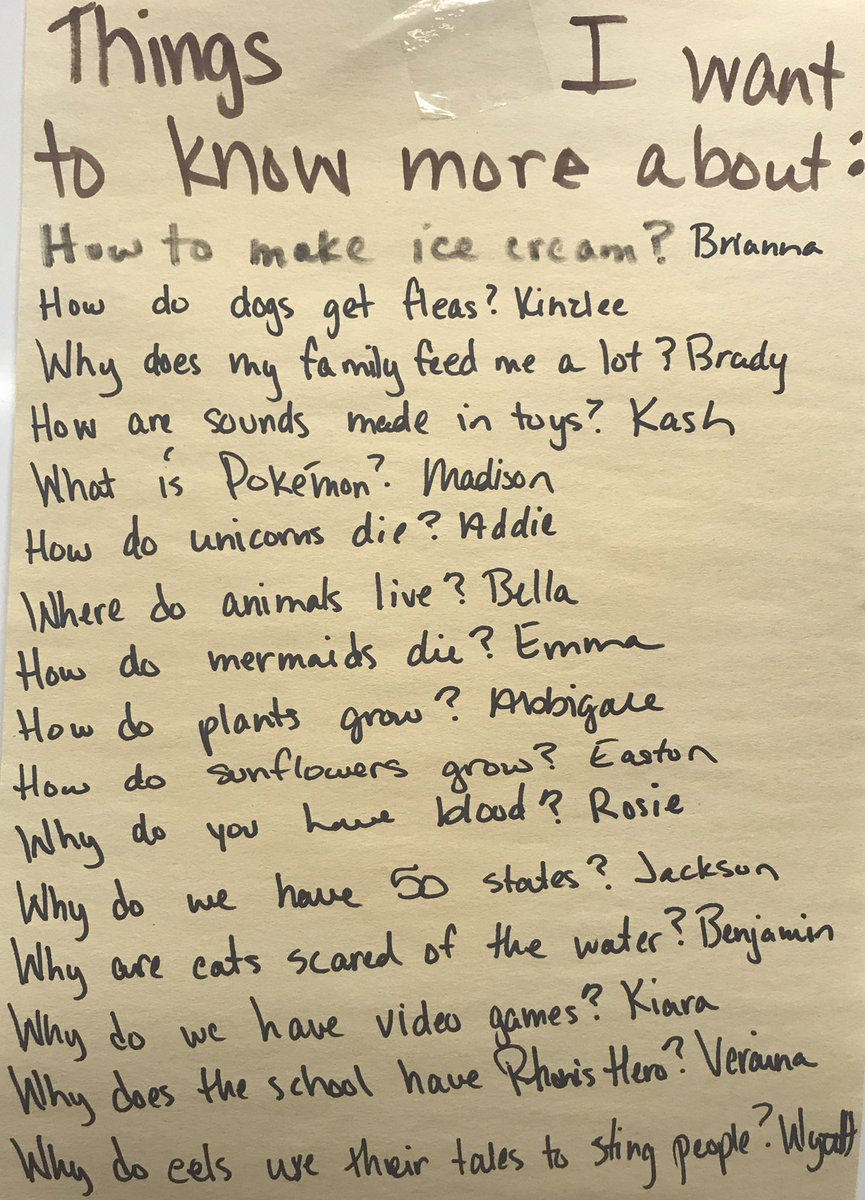 Things I want
to know more about:
How to make ice cream? Brianna
How do dogs get fleas? Kinzlee
Why does my family feed me a lot? Brady
How are sounds made in toys? Kash
What is Pokémon? Madison
How do unicorns die? Addie
Where do animals live? Bella
How do mermaids die? Emma
How do plants grow? Abbigale
How do sunflowers grow? Easton
Why do you have blood? Rosie
Why do we have 50 states? Jackson
Why are cats scared of the water? Benjamin
Why do we have video games? Kiara
Why does the school have Hero?
Why do eels use their tales to sting people? Wyatt